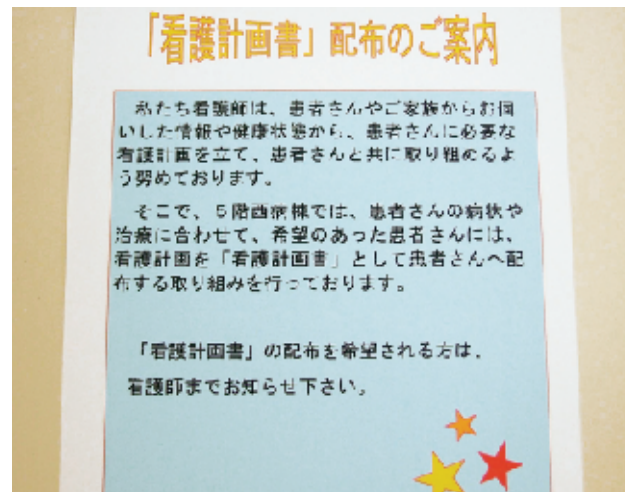 「看護計画書」配布のご案内
私たち看護師は、患者さんやご家族からお伺
いした情報や健康状態から、患者さんに必要な
看護計画を立て、患者さんと共に取り組めるよ
う努めております。
そこで、5階西病棟では、患者さんの病状や
治療に合わせて、希望のあった患者さんには、
看護計画を「看護計画書」として患者さんへ配
布する取り組みを行っております。
「看護計画書」の配布を希望される方は、
看護師までお知らせ下さい。